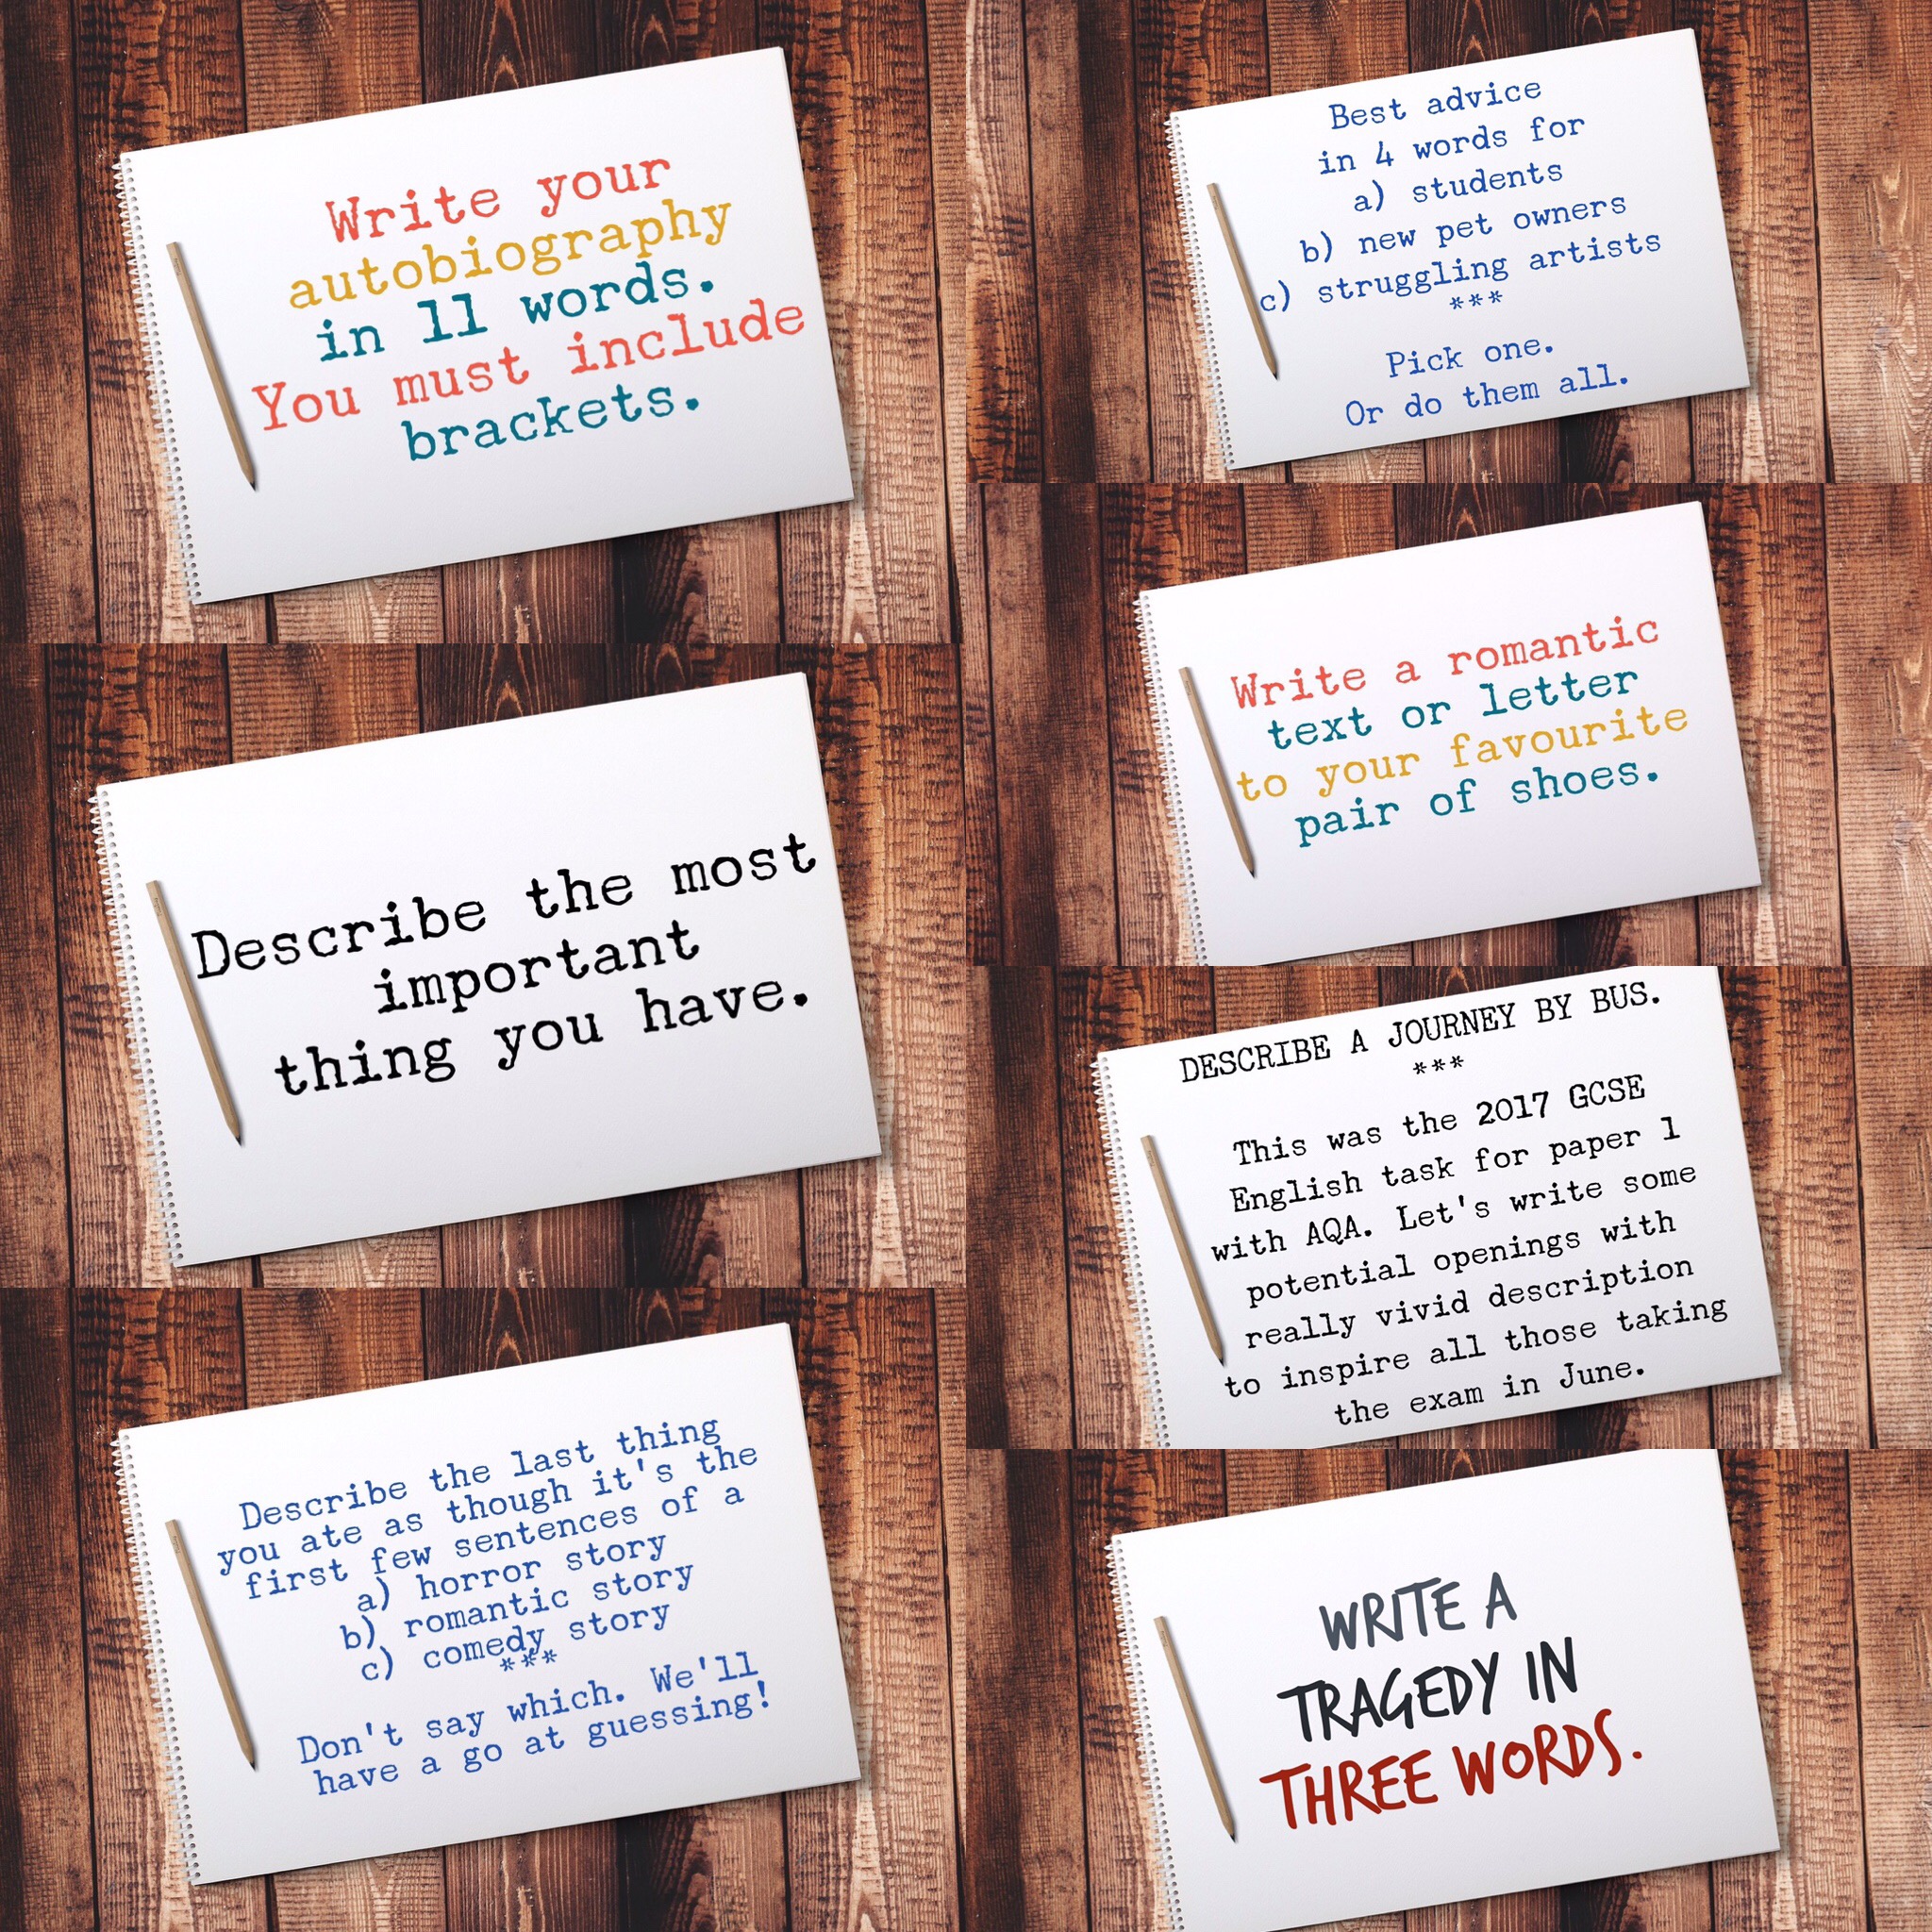 Write your
autobiography
in 11 words.
You must include
brackets.
Describe the most
important
thing you have.
Describe the last thing
you ate as though it's the
first few sentences of a
a) horror story
b) romantic story
c) comedy story
***
Don't say which. We'll
have a go at guessing!
Best advice
in 4 words for
a) students
b) new pet owners
c) struggling artists
***
Pick one.
Or do them all.
Write a romantic
text or letter
to your favourite
pair of shoes.
DESCRIBE A JOURNEY BY BUS.
***
This was the 2017 GCSE
English task for paper 1
with AQA. Let's write some
potential openings with
really vivid description
to inspire all those taking
the exam in June.
WRITE A
TRAGEDY IN
THREE WORDS.